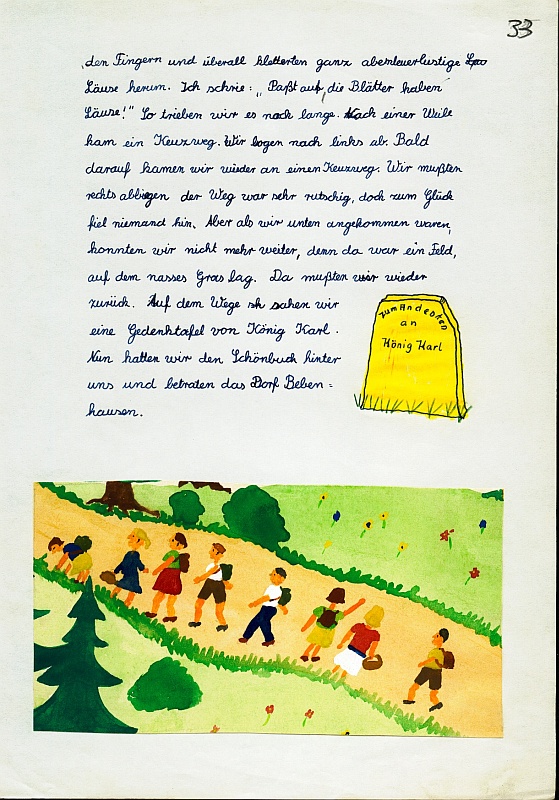 33
den Fingern und überall kletterten ganz abenteuerlustige
Läuse herum. Ich schrie: „Paßt auf, die Blätter haben
Läuse!" So trieben wir es noch lange. Nach einer Weile
kam ein Keuzweg. Wir bogen nach links ab. Bald
darauf kamen wir wieder an einen Keuzweg. Wir mußten
rechts abbiegen der Weg war sehr rutschig, doch zum Glück
fiel niemand hin. Aber als wir unten angekommen waren,
konnten wir nicht mehr weiter, denn da war ein Feld,
auf dem nasses Gras lag. Da mußten wir wieder
zurück. Auf dem Wege sahen wir
eine Gedenktafel von König Karl.
Nun hatten wir den Schönbuch hinter
uns und betraten das Dorf Beben=
hausen.
Zum Andenken
an
König Karl